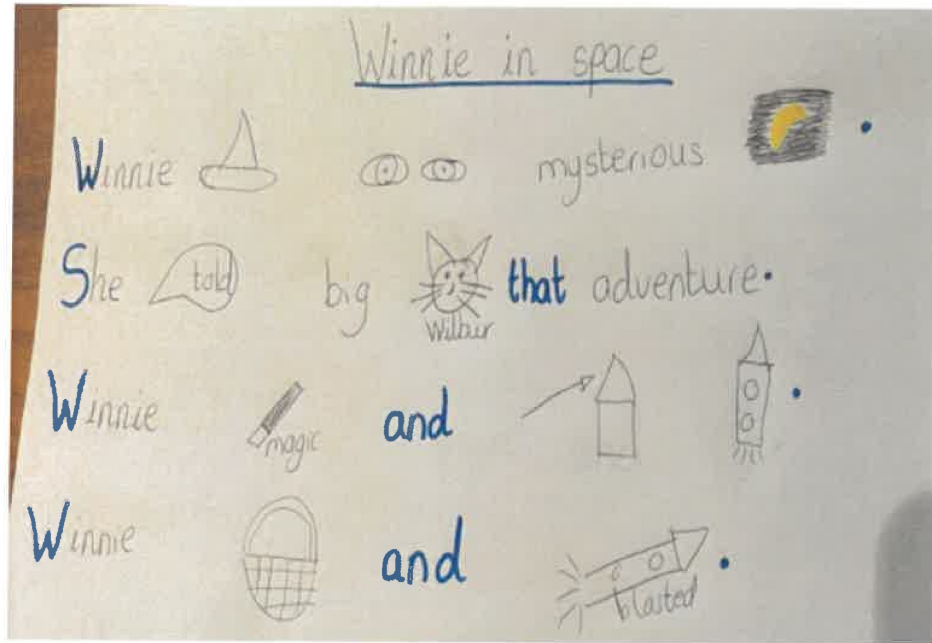 Winnie in space
Winnie mysterious .
She told big Wilbur that adventure.
Winnie magic and .
Winnie and blasted .